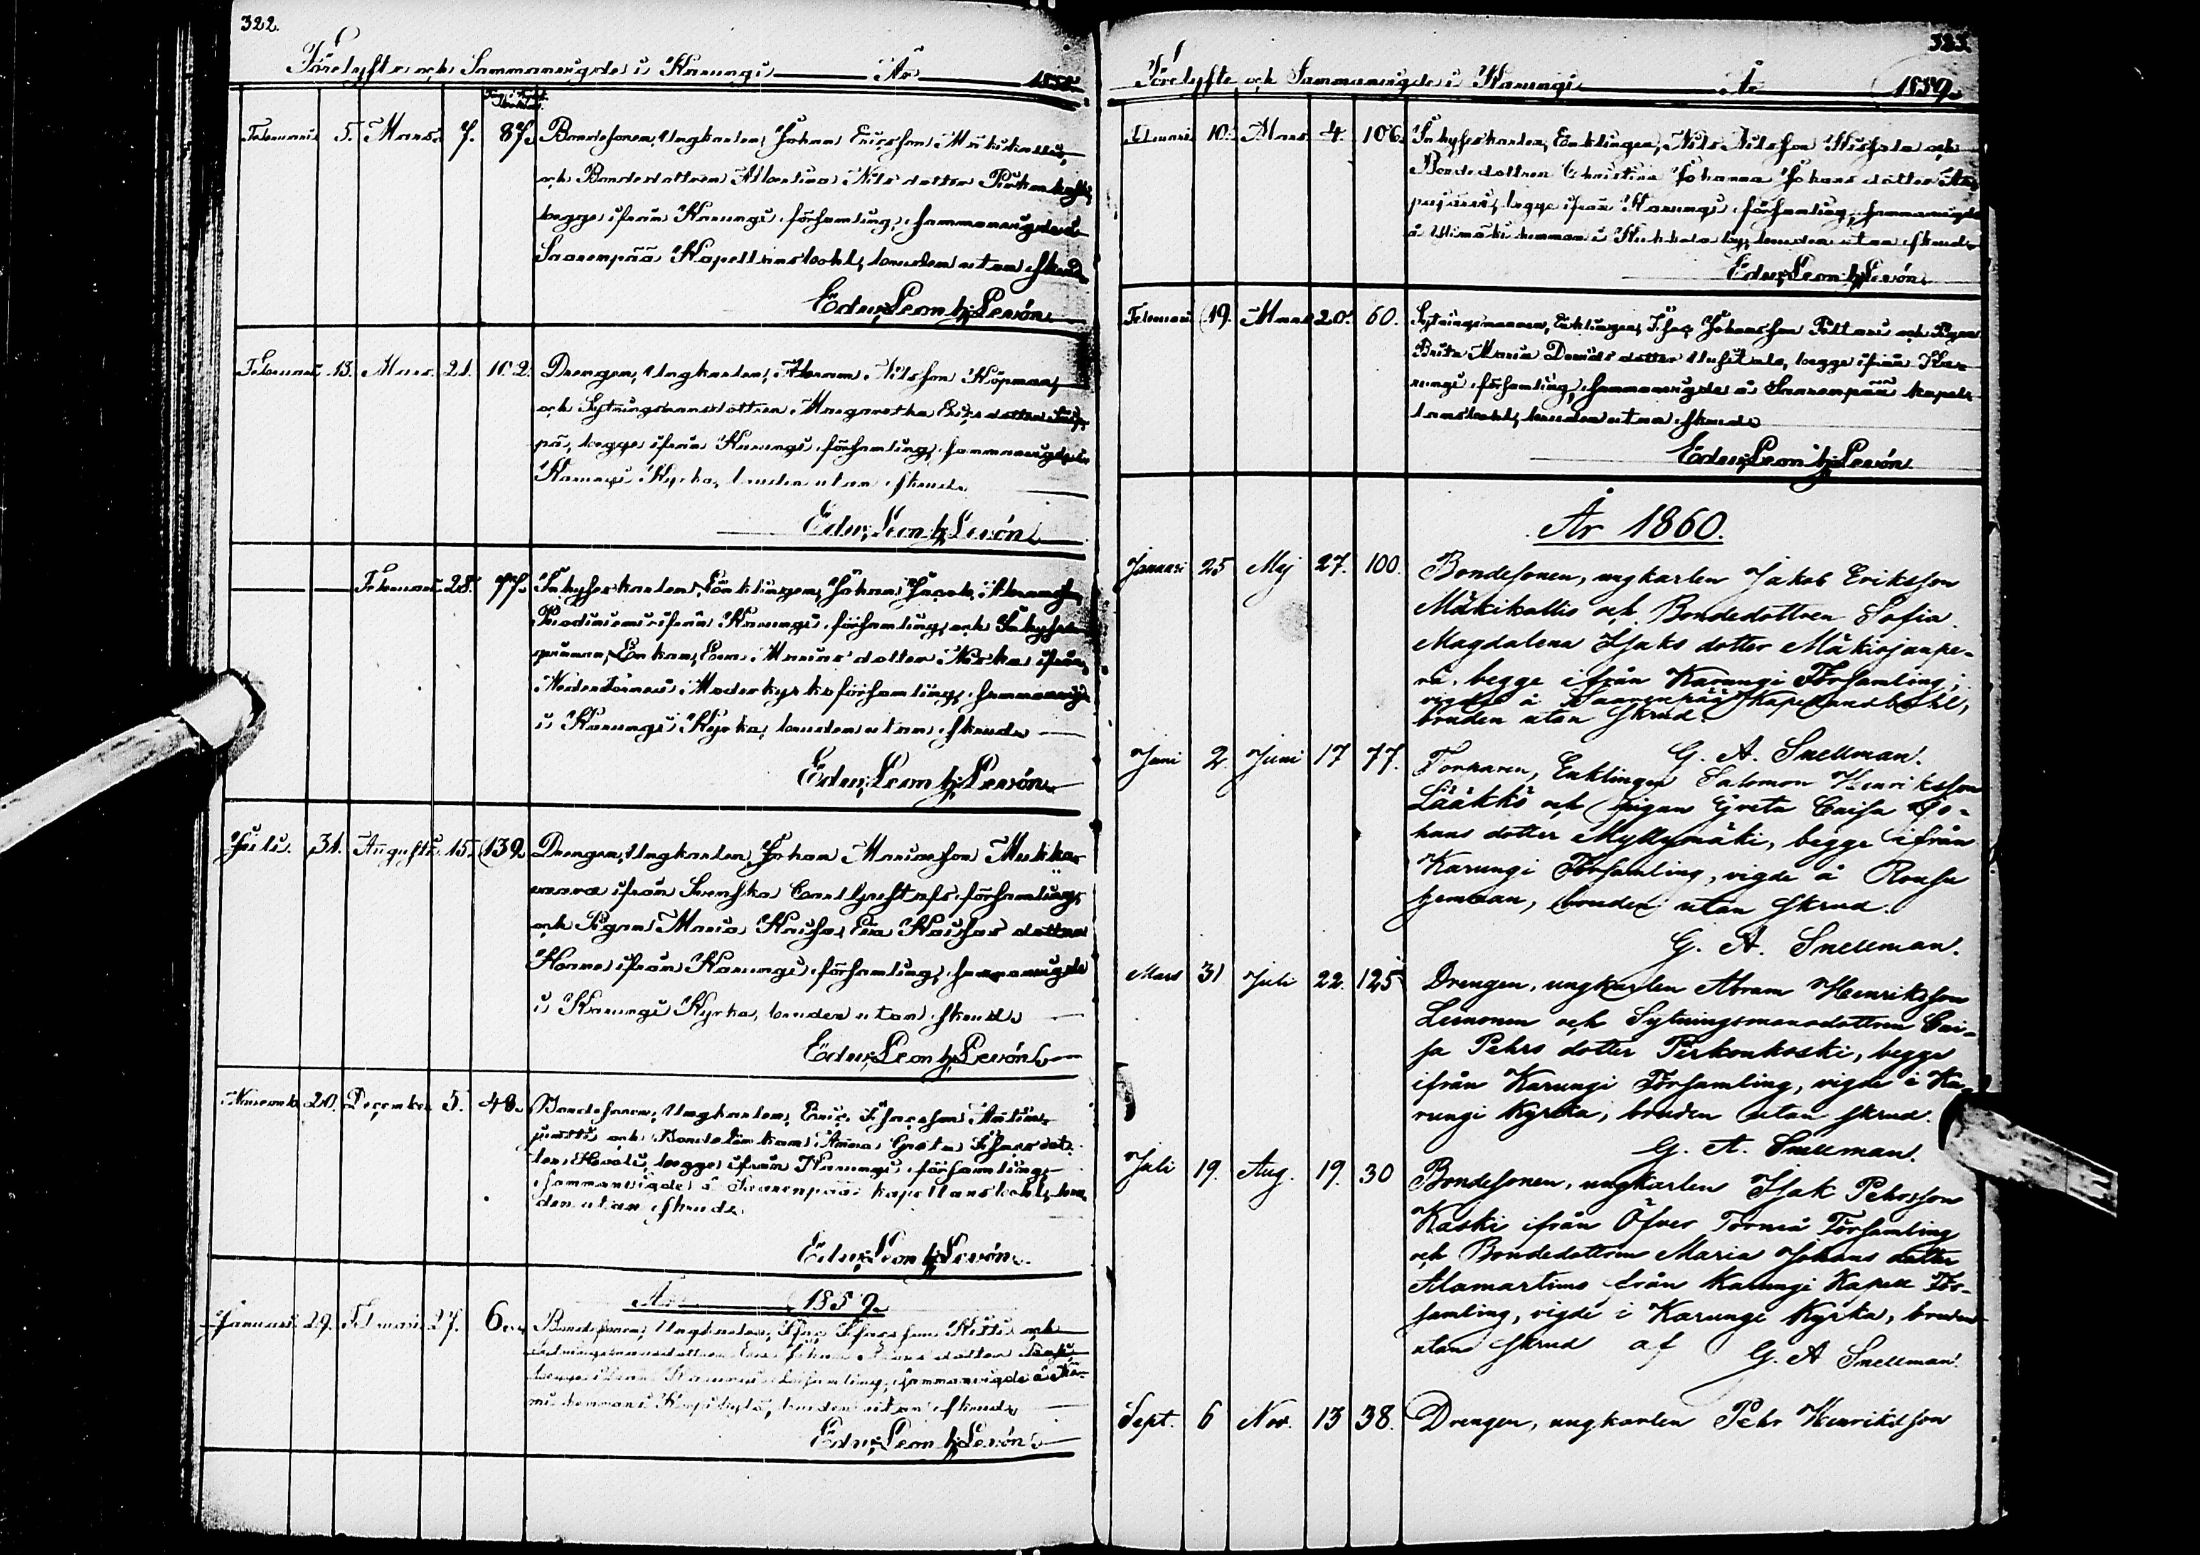 322.
Förelyste och Sammanvigde i Karungi År 1858.
Februari 5. Mars 7. 87. Bondesonen, Ungkarlen, Johan Ericsson Mäkikallio,
och Bondedottren Albertina Nils dotter
begge ifrån Karungi församling, sammanvigde å
Saarenpää Kapellansbohl, bruden utan skrud.
Edv. Leon h. Levón.
Februari 13. Mars 21. 102. Drengen, Ungkarlen, Abram Nilsson Köpman,
och Sytningsmansdottren Margaretha Erics dotter
pä, begge ifrån Karungi församling, sammanvigde i
Karungi Kyrka, bruden utan skrud.
Edv. Leon h. Levón.
Februari 28. 77. Inhyseskarlen, Enklingen, Johan Jacob
ifrån Karungi församling, och Inhyses
qvinnan, Enkan, Eva Marias dotter Niska ifrån
Neder Torneå Moderkyrkoförsamling, sammanvigde
i Karungi Kyrka, bruden utan skrud.
Edv. Leon h. Levón.
Juli. 31. Augusti. 15. 139. Drengen, Ungkarlen, Johan Mariasson Mukka-
vaara ifrån Svenska församling,
och Pigan Maria Kaisa, Eva Kaisas dotter
ifrån Karungi församling, sammanvigde
i Karungi Kyrka, bruden utan skrud.
Edv. Leon h. Levón.
November 20. December 5. 48. Bondesonen, Ungkarlen, Eric Isacsson Antin-
juntti och Bonde Enkan, Anna Greta Isacs dot-
ter begge ifrån Karungi församling,
sammanvigde å Saarenpää kapellansbohl, bru-
den utan skrud.
Edv. Leon h. Levón.
År 1859.
Januari 29. Februari 27. 6. Bondesonen, Ungkarlen, Isac Isacsson och
Sytningsmansdottren Eva Johanna dotter
begge ifrån Karungi församling, sammanvigde å
hemman i by, bruden utan skrud.
Edv. Leon h. Levón.
323.
Förelyste och Sammanvigde i Karungi År 1859.
Februari 10. Mars 4. 106. Inhyseskarlen, Enklingen, Nils Nilsson och
Bondedottren Christina Johanna Johans dotter
begge ifrån Karungi församling, sammanvigde
å hemman i by, bruden utan skrud.
Edv. Leon h. Levón.
Februari 19. Mars 20. 60. Sytningsmannen, Enklingen, Isac Johansson och Pigan
Brita Maria Davids dotter begge ifrån Ka-
rungi församling, sammanvigde å Saarenpää kapel-
lansbohl, bruden utan skrud.
Edv. Leon h. Levón.
År 1860.
Januari 25 Maj 27. 100. Bondesonen, ungkarlen Jakob Eriksson
Mäkikallio och Bondedottren Sofia
Magdalena Isaks dotter Mäkiojanpe-
rä, begge ifrån Karungi Församling,
vigde å Saarenpää Kapellansbohl,
bruden utan skrud.
G. A. Snellman.
Juni 2. Juni 17 77. Torparen, Enklingen Salomon Henriksson
Lääkkö och pigan Greta Caisa Jo-
hans dotter Myllymäki, begge ifrån
Karungi Församling, vigde å Rousu
hemman, bruden utan skrud.
G. A. Snellman.
Mars 31 Juli 22. 125 Drengen, ungkarlen Abram Henriksson
Lernonen och Sytningsmansdottren Cai-
sa Pehrs dotter Pirkonkoski, begge
ifrån Karungi Församling, vigde i Ka-
rungi Kyrka, bruden utan skrud.
G. A. Snellman.
Juli 19. Aug. 19. 30 Bondesonen, ungkarlen Isak Pehrsson
Kaski ifrån Öfver Torneå Församling
och Bondedottren Maria Johans dotter
Alamartimo från Karungi Kapell För-
samling, vigde i Karungi Kyrka, bruden
utan skrud af G. A Snellman.
Sept. 6 Nov. 13 38. Drengen, ungkarlen Pehr Henriksson